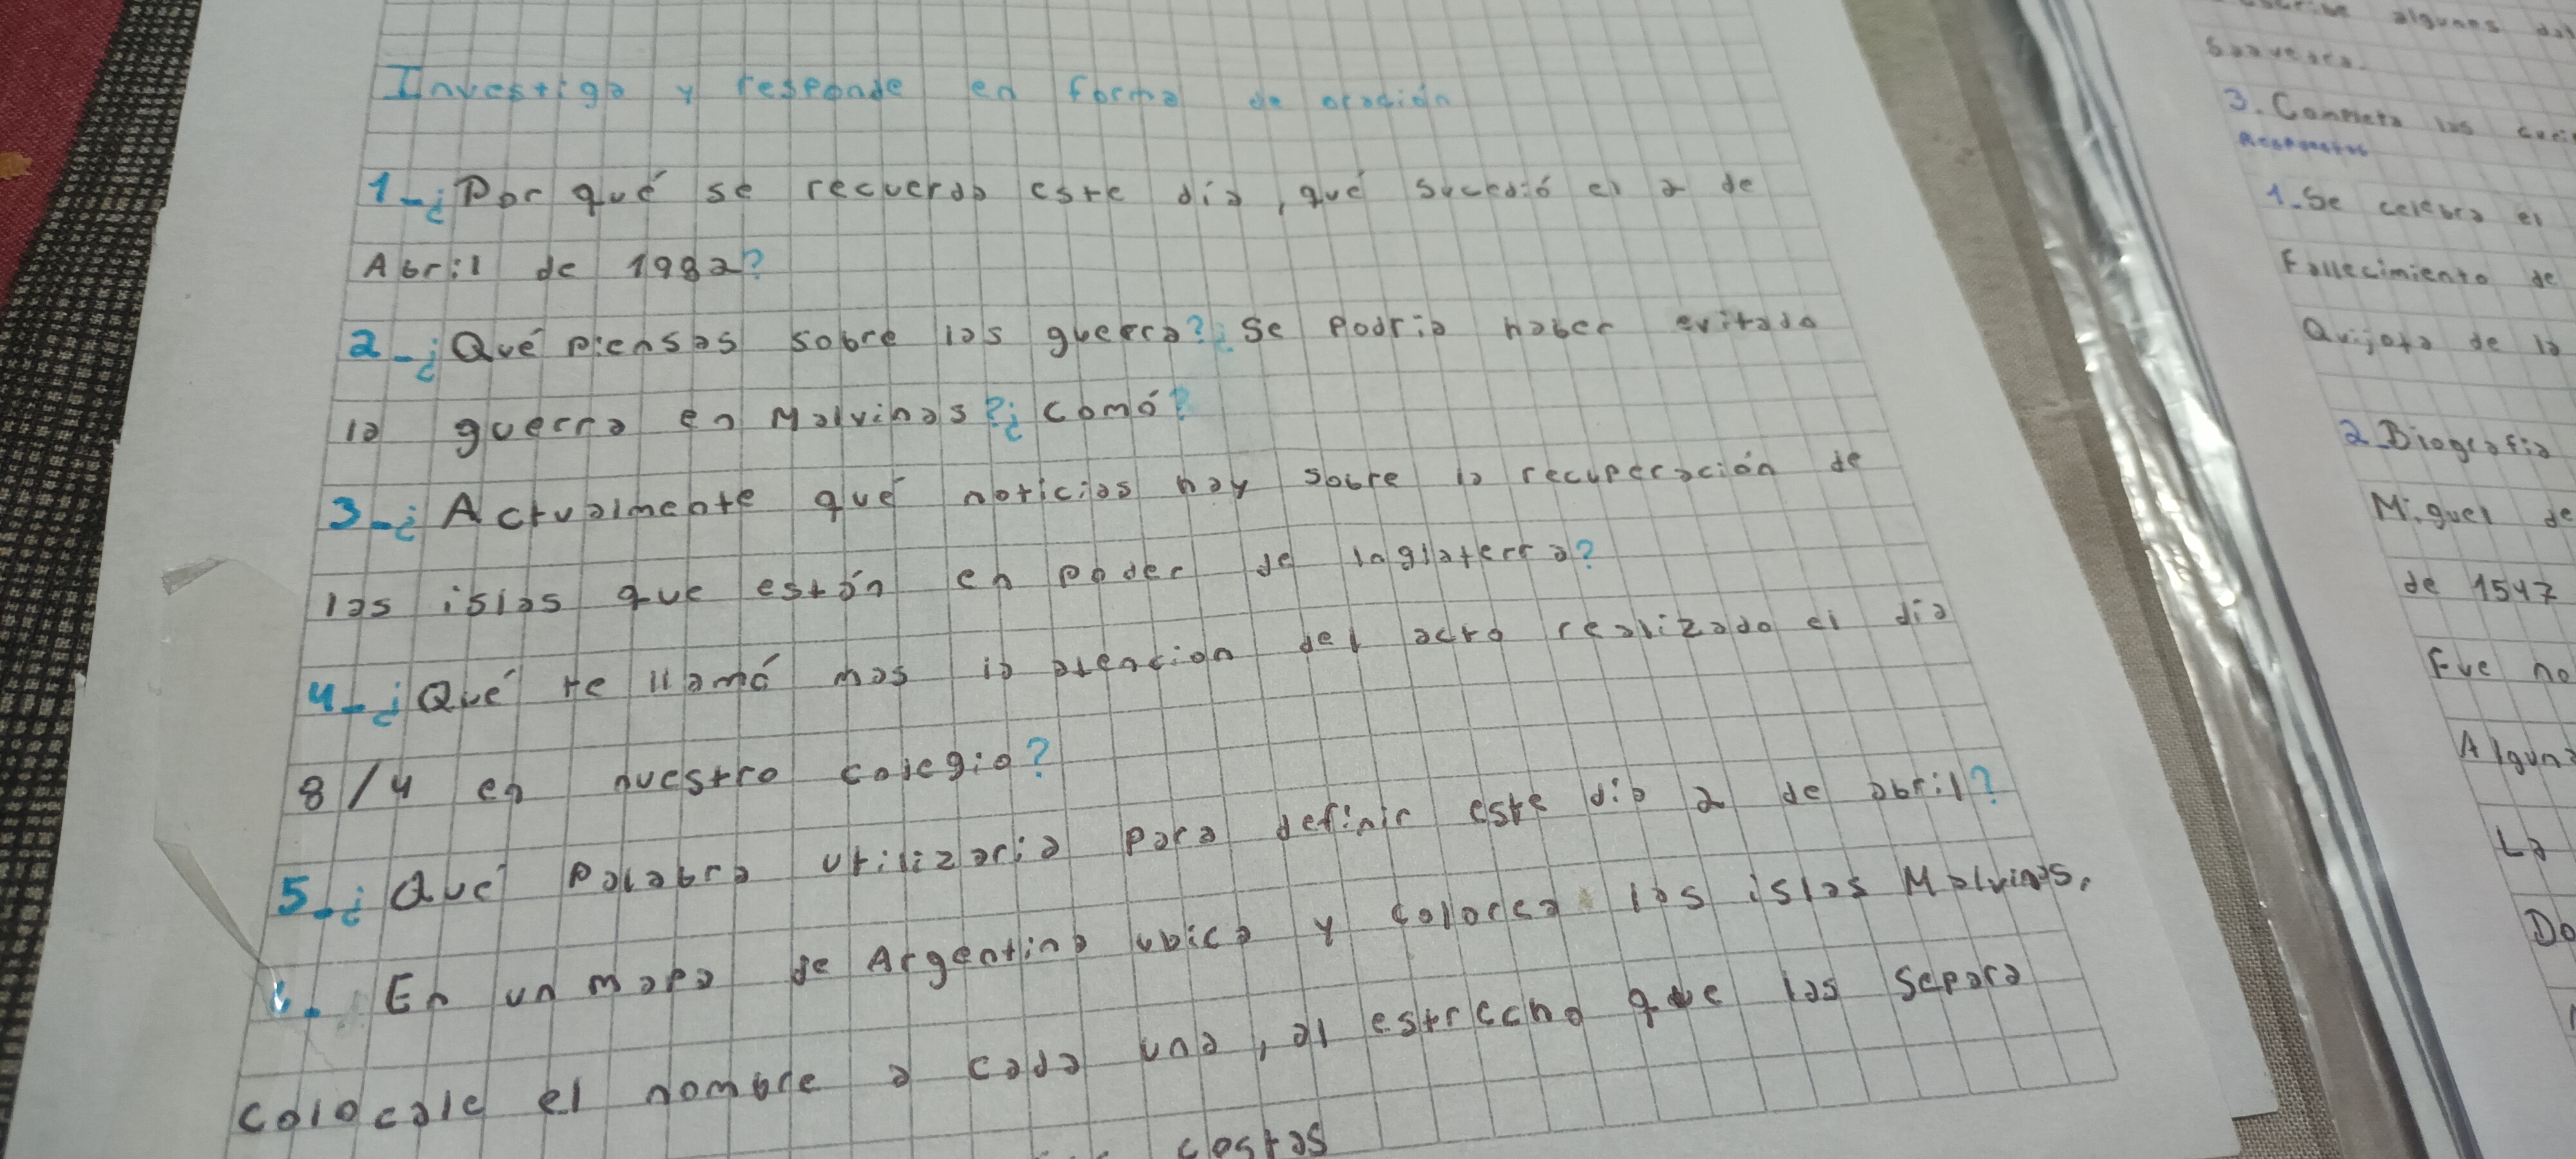 Investiga y responde en forma de oración
1-¿Por qué se recuerda este día, qué sucedió el 2 de
Abril de 1982?
2-¿Qué piensas sobre las guerra?¿Se podría haber evitado
la guerra en Malvinas?¿Comó?
3-¿Actualmente qué noticias hay sobre la recuperación de
las islas que están en poder de Inglaterra?
4-¿Qué te llamó mas la atención del acto realizado el día
8/4 en nuestro colegio?
5-¿Qué Palabra utilizaría para definir este día 2 de abril?
6. En un mapa de Argentina ubica y colorea las islas Malvinas,
colocale el nombre a cada una, al estrecho que las separa
costas
algunos
Saavedra.
3. Completa las
Respuestas
1.Se celebra el
Fallecimiento de
Quijota de la
2-Biografía
Miguel de
de 1547
Fue no
Alguna
La
Do